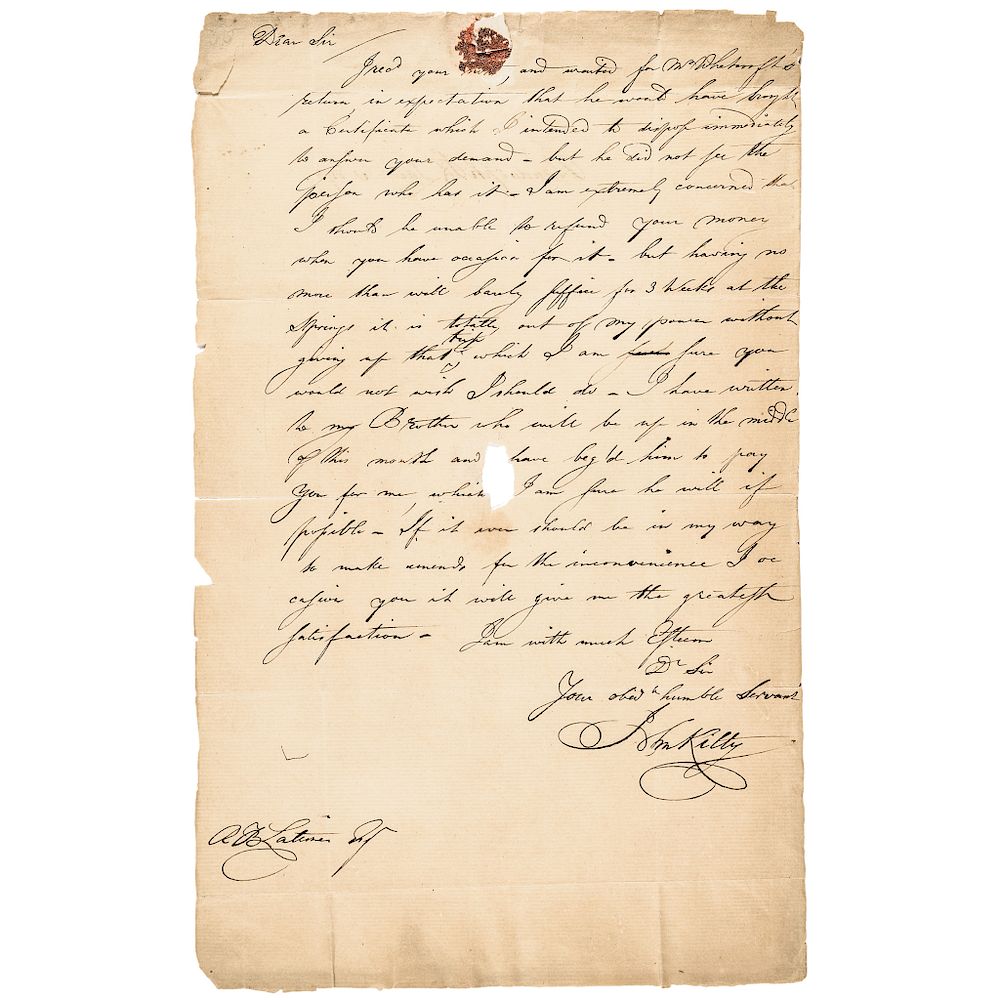 Dear Sir
I recd your and waited for Mr Whetcroft's
return in expectation that he would have brought
a Certificate which I intended to dispose immediately
to answer your demand - but he did not see the
person who has it - I am extremely concerned that
I should be unable to refund your money
when you have occasion for it - but having no
more than will barely suffice for 3 Weeks at the
Springs it is totally out of my power without
giving up that trip which I am sure you
would not wish I should do - I have written
to my Brother who will be up in the middle
of this month and have beg'd him to pay
you for me, which I am sure he will if
possible - If it ever should be in my way
to make amends for the inconvenience I oc
casion you it will give me the greatest
satisfaction - I am with much Esteem
Dr Sir
Your obedt humble Servant
John Kilty
Latimer Esqr